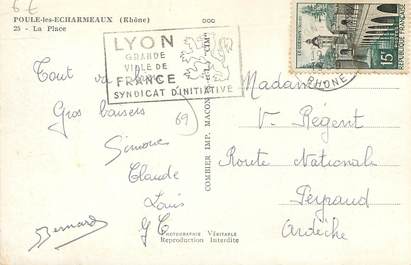 6 €
POULE-les-ECHARMEAUX (Rhône)
25 - La Place
LYON
GRANDE
VILLE DE
FRANCE
SYNDICAT D'INITIATIVE
LE QUESNOY
15F
RHÔNE
Tout va bien
Gros baisers
69
Simone
Claude
Louis
Bernard
COMBIER IMP. MACON
PHOTOGRAPHIE VÉRITABLE
Reproduction Interdite
Madame
V. Régent
Route Nationale
Peyraud
Ardèche